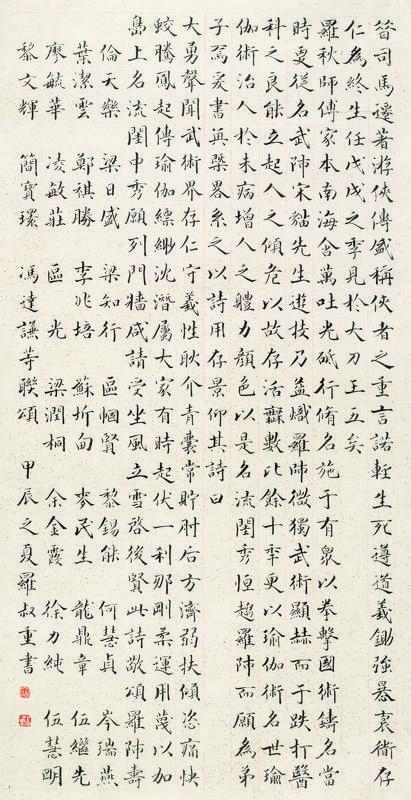 昔司馬遷著游俠傳盛稱俠者之重言諾輕生死遵道義鋤強暴哀衛存
仁為終生任戊戌之季見於大刀王五矣
羅秋師傅家本南海含萬吐光砥行脩名施于有眾以拳擊國術鑄名當
時更從名武師宋貓先生遊技乃益熾羅師微獨武術顯赫而于跌打醫
科之良能立起人之傾危以故存活無數比餘十年更以瑜伽術名世瑜
伽術治人於未病增人之體力顏色以是名流閨秀恒趨羅師而願為弟
子焉爰書其槩畧系之以詩用存景仰其詩曰
大勇聲聞武術界存仁守義性耿介青囊常貯肘后方濟弱扶傾恣痛快
蛟騰鳳起傳瑜伽縹緲沈潛屬大家有時起伏一利那剛柔運用蔑以加
島上名流閨中秀願列門牆咸請受坐風立雪啓後賢此詩敬頌羅師壽
倫天樂　梁日盛　梁知行　區悃賢　黎錫能　何慧貞　岑瑞燕
葉潔雲　鄭祺勝　李兆培　蘇圻甸　麥民生　龍鼎章　伍繼先
廖毓華　凌敏莊　區光　梁潤桐　余金霞　徐力純　伍慧明
黎文輝　簡寶環　馮達謙等聯頌　甲辰之夏羅叔重書